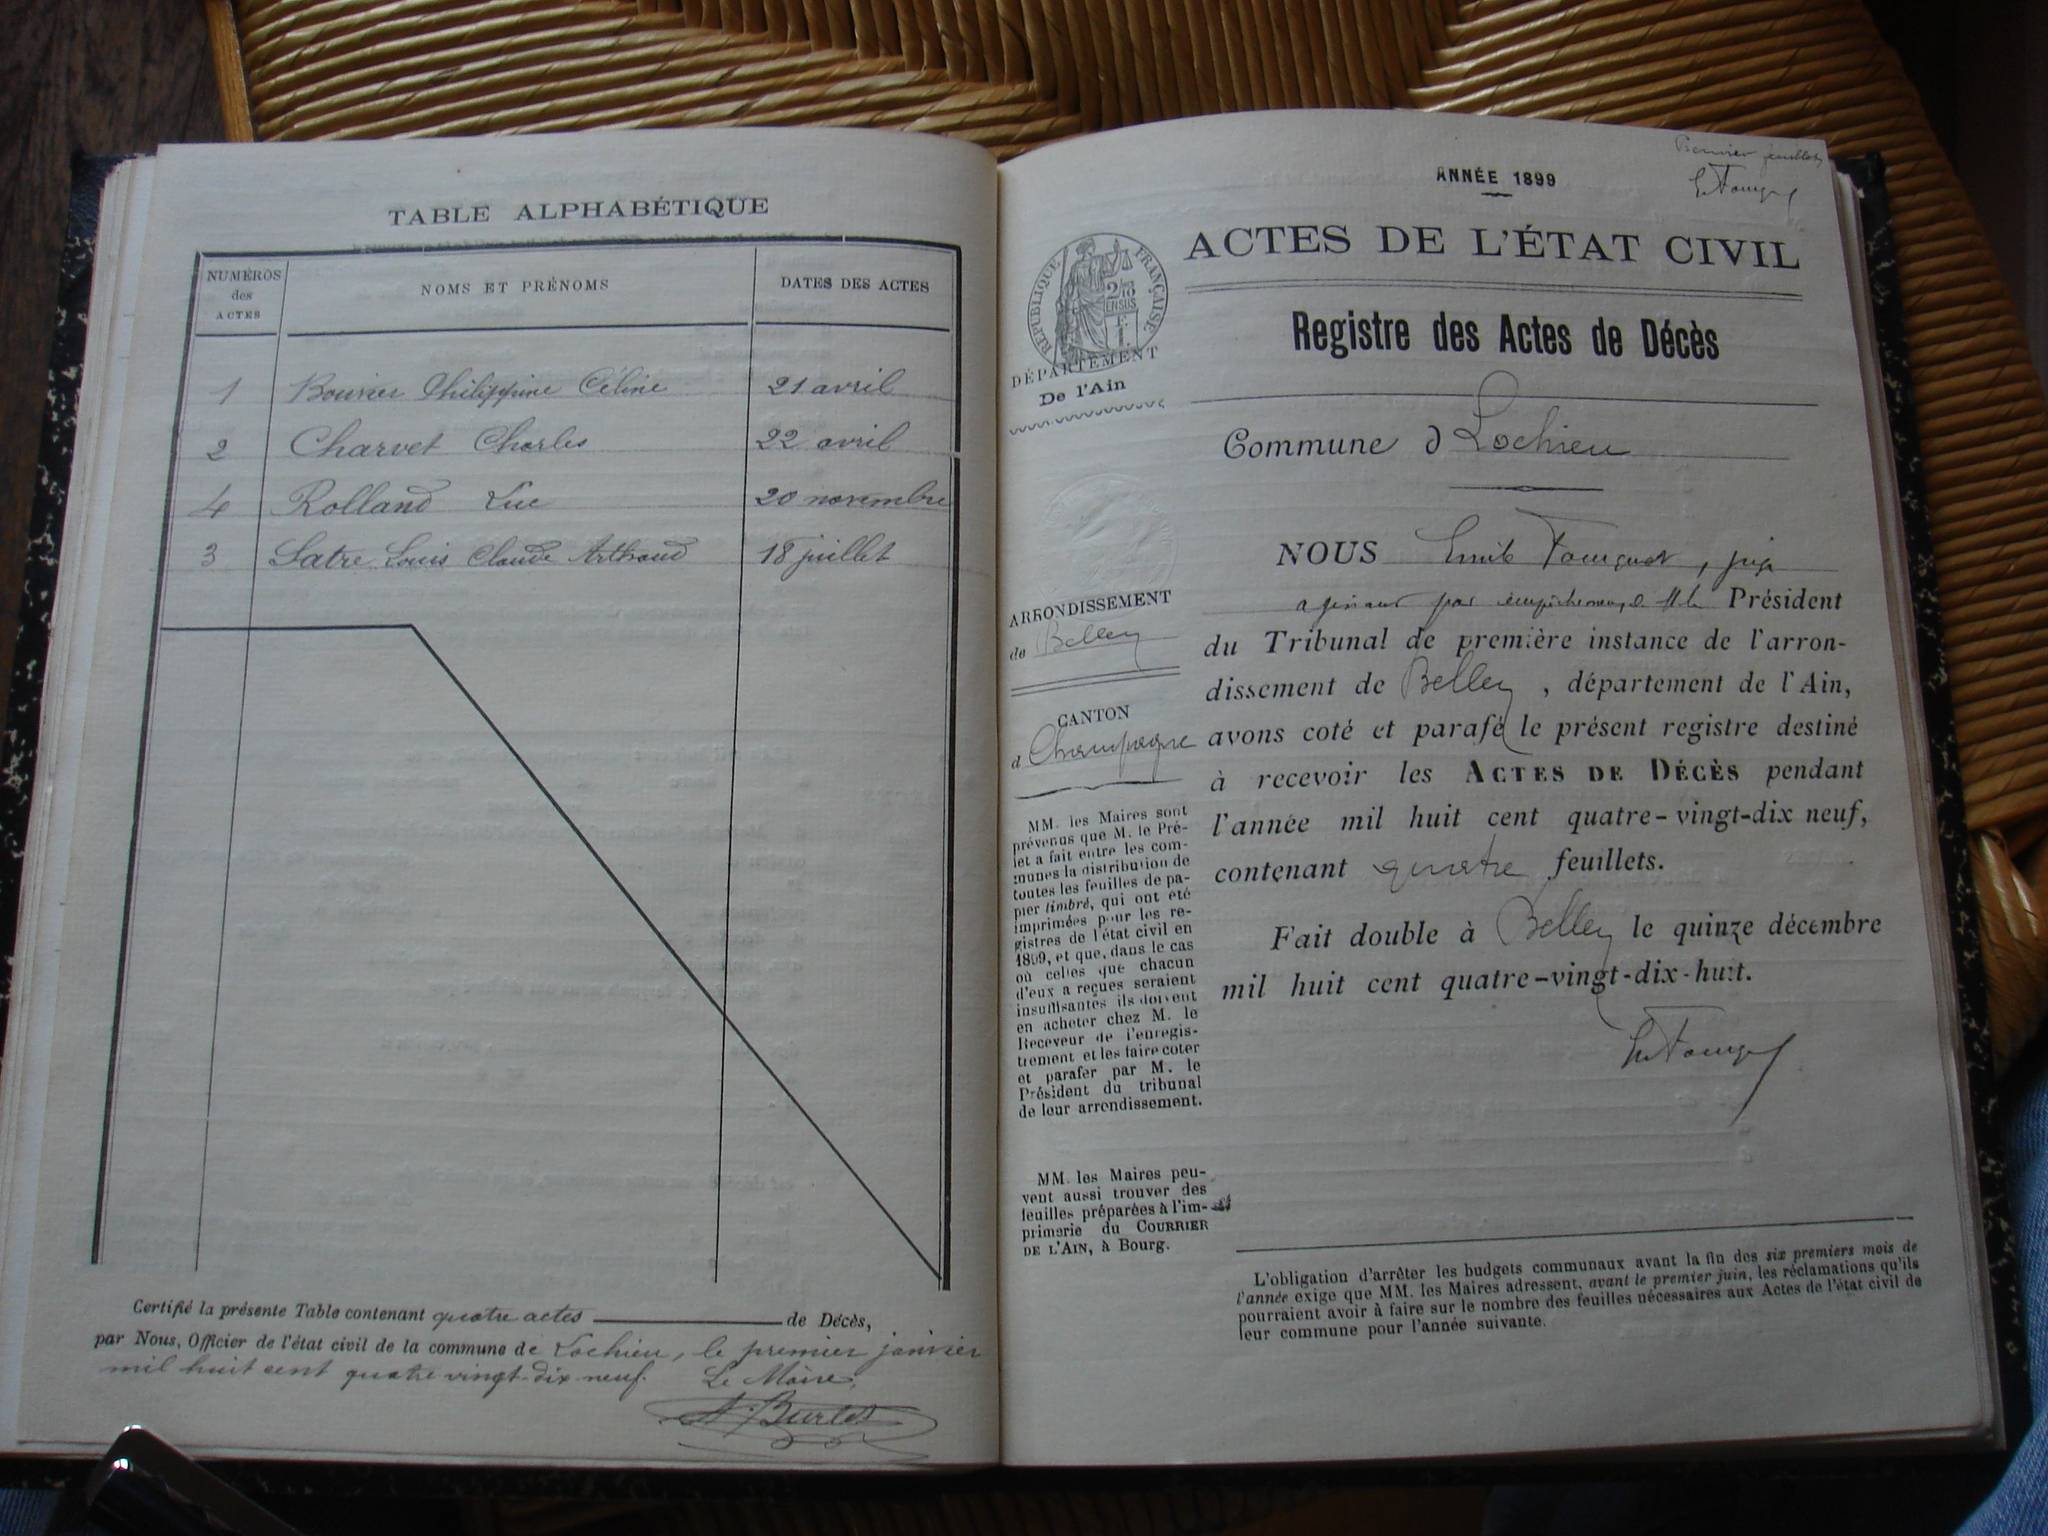 TABLE ALPHABÉTIQUE
NUMÉROS des ACTES
NOMS ET PRÉNOMS
DATES DES ACTES
1 Bouvier Philippine Céline 21 avril
2 Charvet Charles 22 avril
4 Rolland Luc 20 novembre
3 Satre Louis Claude Arthaud 18 juillet
Certifié la présente Table contenant quatre actes de Décès,
par Nous, Officier de l'état civil de la commune de Lochieu, le premier janvier
mil huit cent quatre vingt-dix-neuf. Le Maire,
Premier feuillet
ANNÉE 1899
RÉPUBLIQUE FRANÇAISE
2/10
EN SUS
DÉPARTEMENT
De l'Ain
ARRONDISSEMENT
de Belley
CANTON
d Champagne
MM. les Maires sont
prévenus que M. le Pré-
fet a fait entre les com-
munes la distribution de
toutes les feuilles de pa-
pier timbré, qui ont été
imprimées pour les re-
gistres de l'état civil en
1899, et que, dans le cas
où celles que chacun
d'eux a reçues seraient
insuffisantes ils doivent
en acheter chez M. le
Receveur de l'enregis-
trement et les faire coter
et parafer par M. le
Président du tribunal
de leur arrondissement.
MM. les Maires peu-
vent aussi trouver des
feuilles préparées à l'im-
primerie du COURRIER
DE L'AIN, à Bourg.
ACTES DE L'ÉTAT CIVIL
Registre des Actes de Décès
Commune d Lochieu
NOUS Emile Fourquet, juge
par Président
du Tribunal de première instance de l'arron-
dissement de Belley, département de l'Ain,
avons coté et parafé le présent registre destiné
à recevoir les ACTES DE DÉCÈS pendant
l'année mil huit cent quatre-vingt-dix neuf,
contenant quatre feuillets.
Fait double à Belley le quinze décembre
mil huit cent quatre-vingt-dix-huit.
L'obligation d'arrêter les budgets communaux avant la fin des six premiers mois de
l'année exige que MM. les Maires adressent, avant le premier juin, les réclamations qu'ils
pourraient avoir à faire sur le nombre des feuilles nécessaires aux Actes de l'état civil de
leur commune pour l'année suivante.